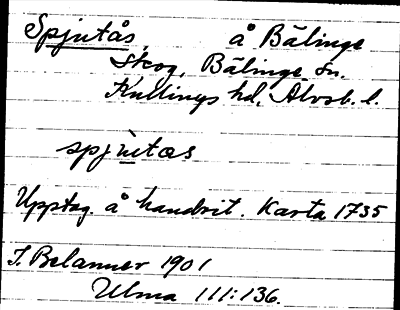 Spjutås, å Bälinge
Skog, Bälinge sn.
Kullings hd, Älvsb. l.
spju̲tås
Upptag. å handrit. Karta 1735
I. Belanner 1901
Ulma 111:136.